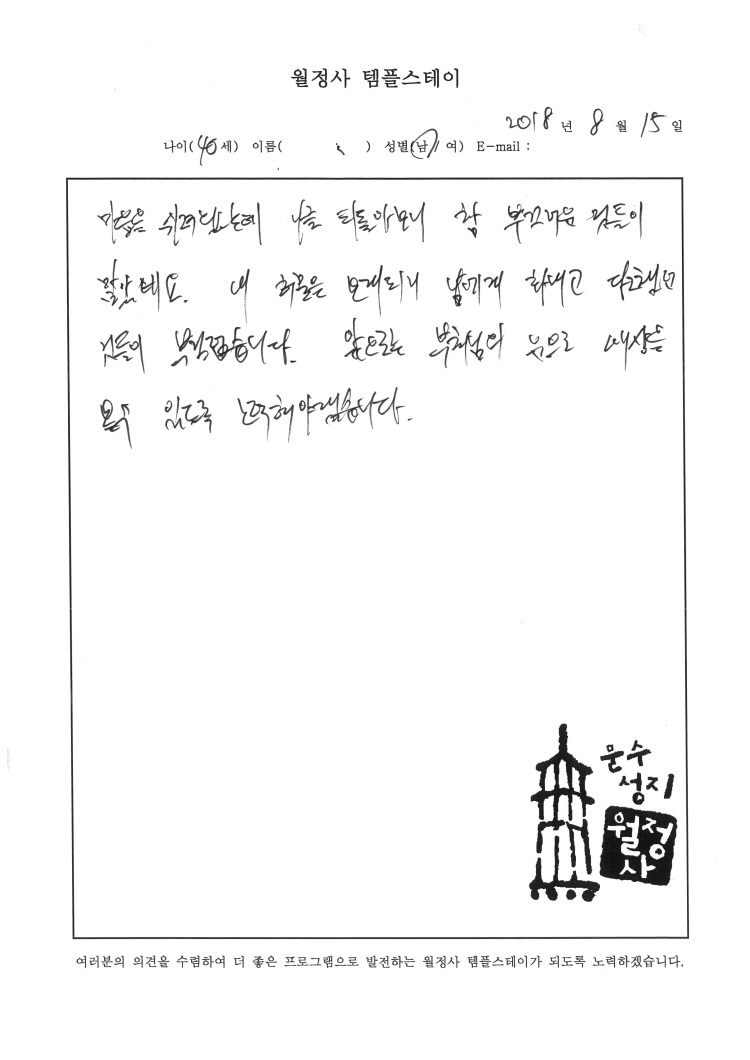 월정사 템플스테이
2018 년 8 월 15 일
나이(40세) 이름( ) 성별(남/여) E-mail :
마음을 쉬려했는데 나를 되돌아보니 참 부끄러운 점들이
많았네요. 내 허물은 모래되니 남에게 화내고
점들이 부끄럽습니다. 앞으로는 부처님의 눈으로 세상을
볼수 있도록 노력해야겠습니다.
문수
성지
월정
사
여러분의 의견을 수렴하여 더 좋은 프로그램으로 발전하는 월정사 템플스테이가 되도록 노력하겠습니다.